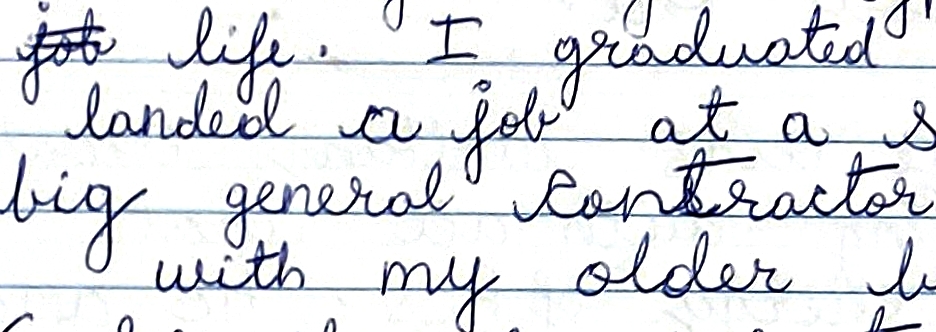 life. I graduated
landed a job at a
big general contractor
with my older